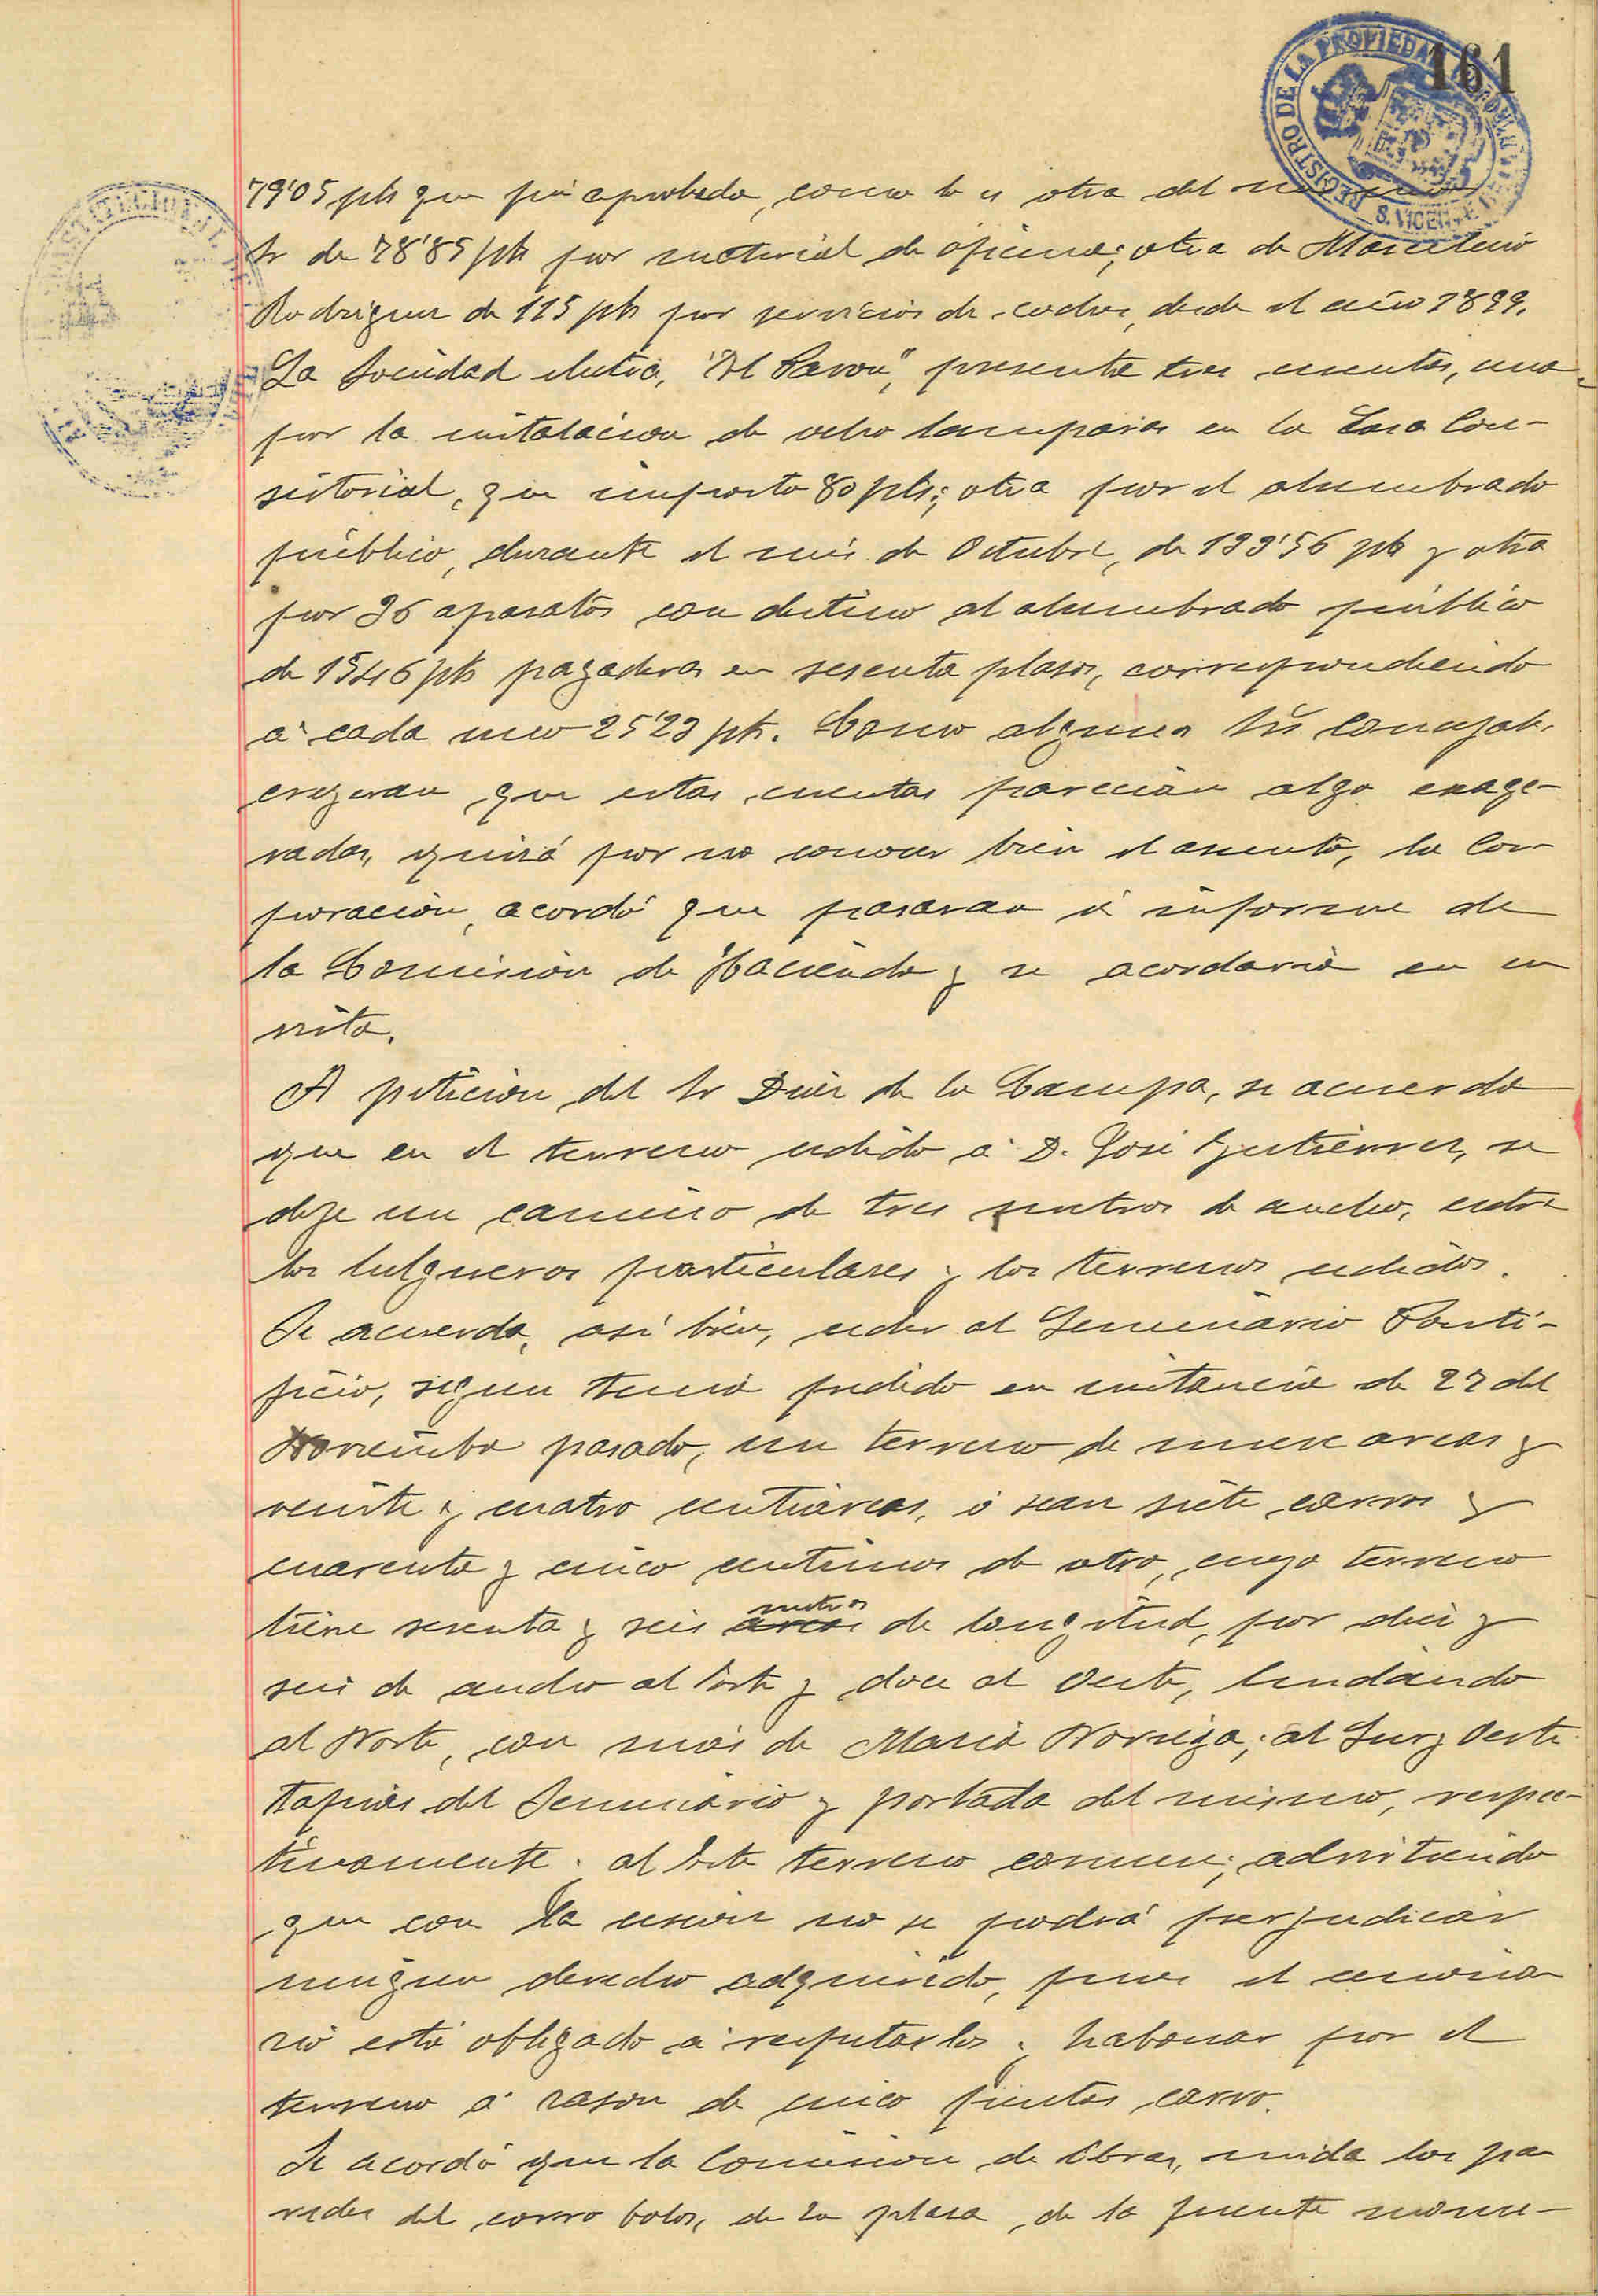 161
REGISTRO DE LA PROPIEDAD
S. VICENTE
79'05 pts que fué aprobada, como lo es otra del mismo
Sr de 78'85 pts por material de oficina; otra de Marcelino
Rodriguez de 115 pts por servicios de coches, desde el año 1899.
La Sociedad electra, "El Saron", presenta tres cuentas, una
por la instalacion de ocho lamparas en la Casa Con-
sistorial, que importa 80 pts; otra por el alumbrado
público, durante el més de Octubre, de 133'56 pts y otra
por 36 aparatos con destino al alumbrado público
de 1546 pts pagaderas en sesenta plasos, correspondiendo
a cada uno 25'23 pts. Como algunos Srs Concejals
creyeran que estas cuentas parecian algo exage-
radas, quizá por no conocer bien el asunto, la Cor-
poración, acordó que pasaran á informe de
la Comision de Hacienda y se acordaria en su
vista.
A peticion del Sr Diez de la Campa, se acuerda
que en el terreno cedido a D. José Gutiérrez, se
deje un camino de tres metros de ancho, entre
los helgueros particulares y los terrenos cedidos.
Se acuerda, asi bien, ceder al Seminario Ponti-
ficio, segun tenia pedido en instancia de 27 del
Noviembre pasado, un terreno de nueve areas y
veinte y cuatro centiáreas, ó sean siete carros y
cuarenta y cinco centimos de otro, cuyo terreno
tiene sesenta y seis areas metros de longitud, por diez y
seis de ancho al Este y doce al Oeste, lindando
al Norte, con más de Maria Noriega; al Sur y Oeste
tapias del Seminario y portada del mismo, respec-
tivamente y al Este terreno comun; advirtiendo
que con la cesion no se podrá perjudicar
ningun derecho adquirido, pues el cesiona
rio está obligado a respetarlos y habonar por el
terreno a rason de cinco pesetas carro.
Se acordó que la Comision de Obras, mida las pa
redes del corro bolos, de la plasa, de la fuente